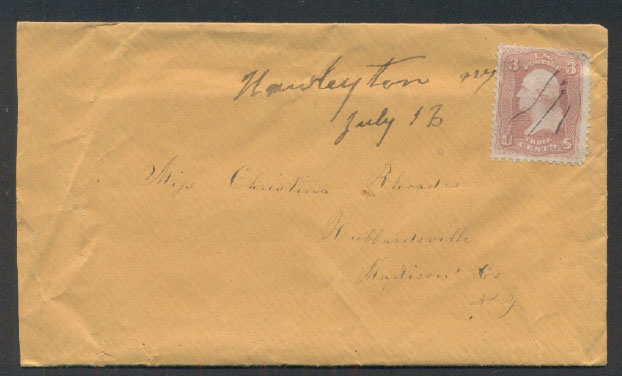 Hawleyton NY
July 13
3 U.S. POSTAGE 3
THREE
U CENTS S
Miss Christina Rhoades
Hubbardsville
Madison Co
N Y